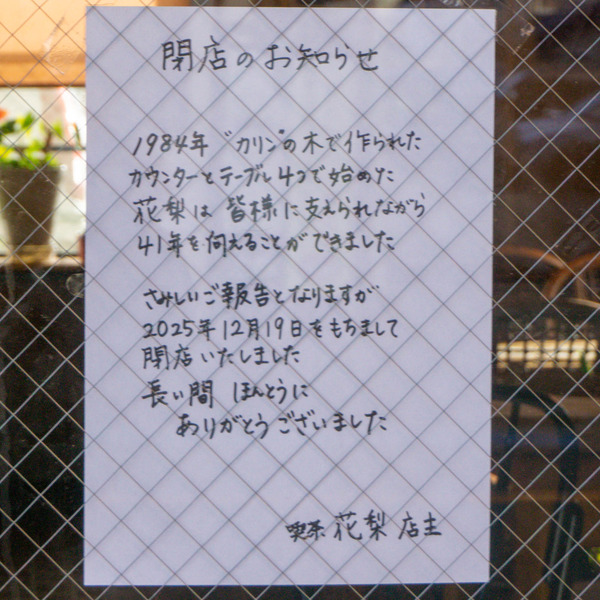 閉店のお知らせ
1984年 "カリン"の木で作られた
カウンターとテーブル4つで始めた
花梨は 皆様に支えられながら
41年を向えることができました
さみしいご報告となりますが
2025年12月19日をもちまして
閉店いたしました
長い間 ほんとうに
ありがとうございました
喫茶 花梨 店主